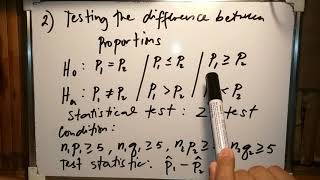 2) Testing the difference between
proportions
H₀: P₁ = P₂ / P₁ ≤ P₂ / P₁ ≥ P₂
Hₐ: P₁ ≠ P₂ / P₁ > P₂ / < P₂
statistical test: Z
Condition:
n₁p₁ ≥ 5, n₁q₁ ≥ 5, n₂p₂ ≥ n₂q₂ ≥ 5
Test statistic: p̂₁ - p̂₂